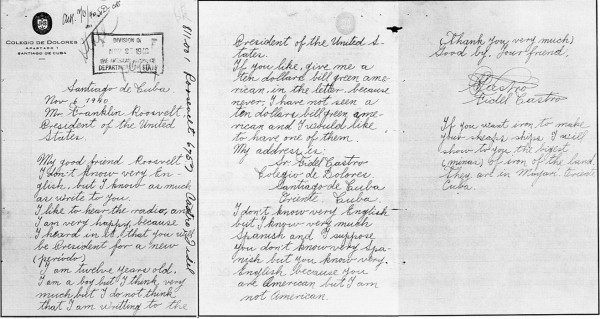 COLEGIO DE DOLORES
APARTADO 1
SANTIAGO DE CUBA
DIVISION OF
DEPARTMENT OF STATE
Santiago de Cuba
Nov 6 1940
Mr Franklin Roosvelt,
President of the United
States.
My good friend Roosvelt
I don't know very En-
glish, but I know as much
as write to you.
I like to hear the radio, and
I am very happy, because
I heard in it, that you will
be President for a new
(periodo)
I am twelve years old.
I am a boy but I think very
much but I do not think
that I am writting to the
President of the United S-
tates.
If you like, give me a
ten dollars bill green ame-
rican, in the letter, because
never, I have not seen a
ten dollars bill green ame-
rican and I would like
to have one of them.
My address is:
Sr Fidel Castro
Colegio de Dolores
Santiago de Cuba
Oriente Cuba
I don't know very English
but I know very much
Spanish and I suppose
you don't know very Spa-
nish but you know very
English because you
are American but I am
not American.
(Thank you very much)
Good by. Your friend,
Castro
Fidel Castro
If you want iron to make
your sheaps ships I will
show to you the bigest
(minas) of iron of the land.
They are in Mayari Oriente
Cuba.